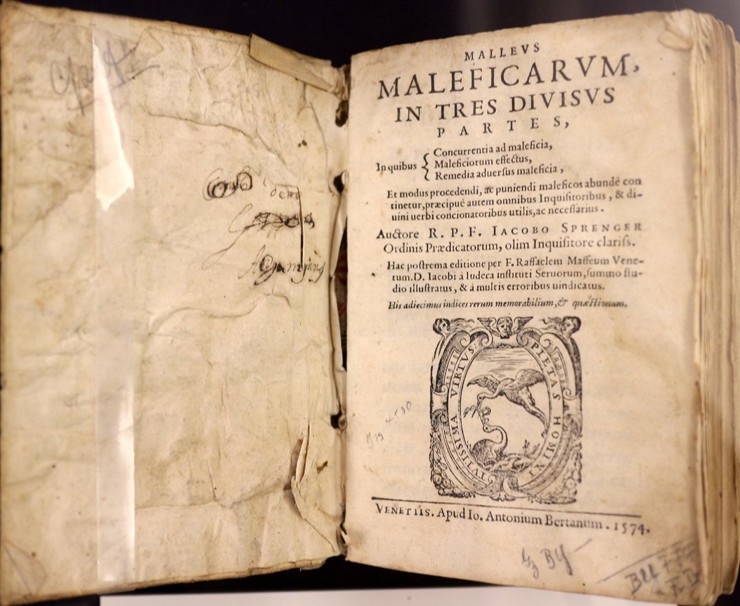 MALLEVS
MALEFICARVM,
IN TRES DIVISVS
PARTES,
In quibus { Concurrentia ad maleficia,
Maleficiorum effectus,
Remedia aduersus maleficia,
Et modus procedendi, ac puniendi maleficos abundè con
tinetur, præcipuè autem omnibus Inquisitoribus, & di-
uini uerbi concionatoribus utilis, ac necessarius.
Auctore R. P. F. IACOBO SPRENGER
Ordinis Prædicatorum, olim Inquisitore clariss.
Hac postrema editione per F. Raffaelem Maffeum Vene-
tum. D. Iacobi à Iudeca instituti Seruorum, summo stu-
dio illustratus, & à multis erroribus uindicatus.
His adiecimus indices rerum memorabilium, & quæstionum.
VIRTVS PIETAS HOMIN
TVTISSIMA
VENETIIS. Apud Io. Antonium Bertanum. 1574.